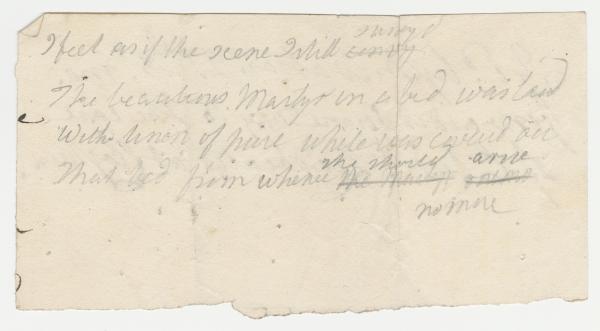 I feel as if the scene I still survey'd
The beautious Martyr in a bed was laid
With linon of pure white was coverd o'er
That bed from whence she should arise
no more